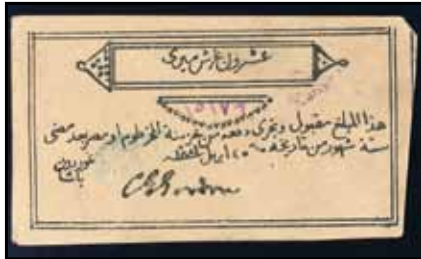 عشرون غرش ميرى
هذا المبلغ مقبول ويجرى دفعه من خزينة الخرطوم او مصر بعد مضى
ستة شهور من تاريخه ابريل
غوردون
باشا
C G Gordon